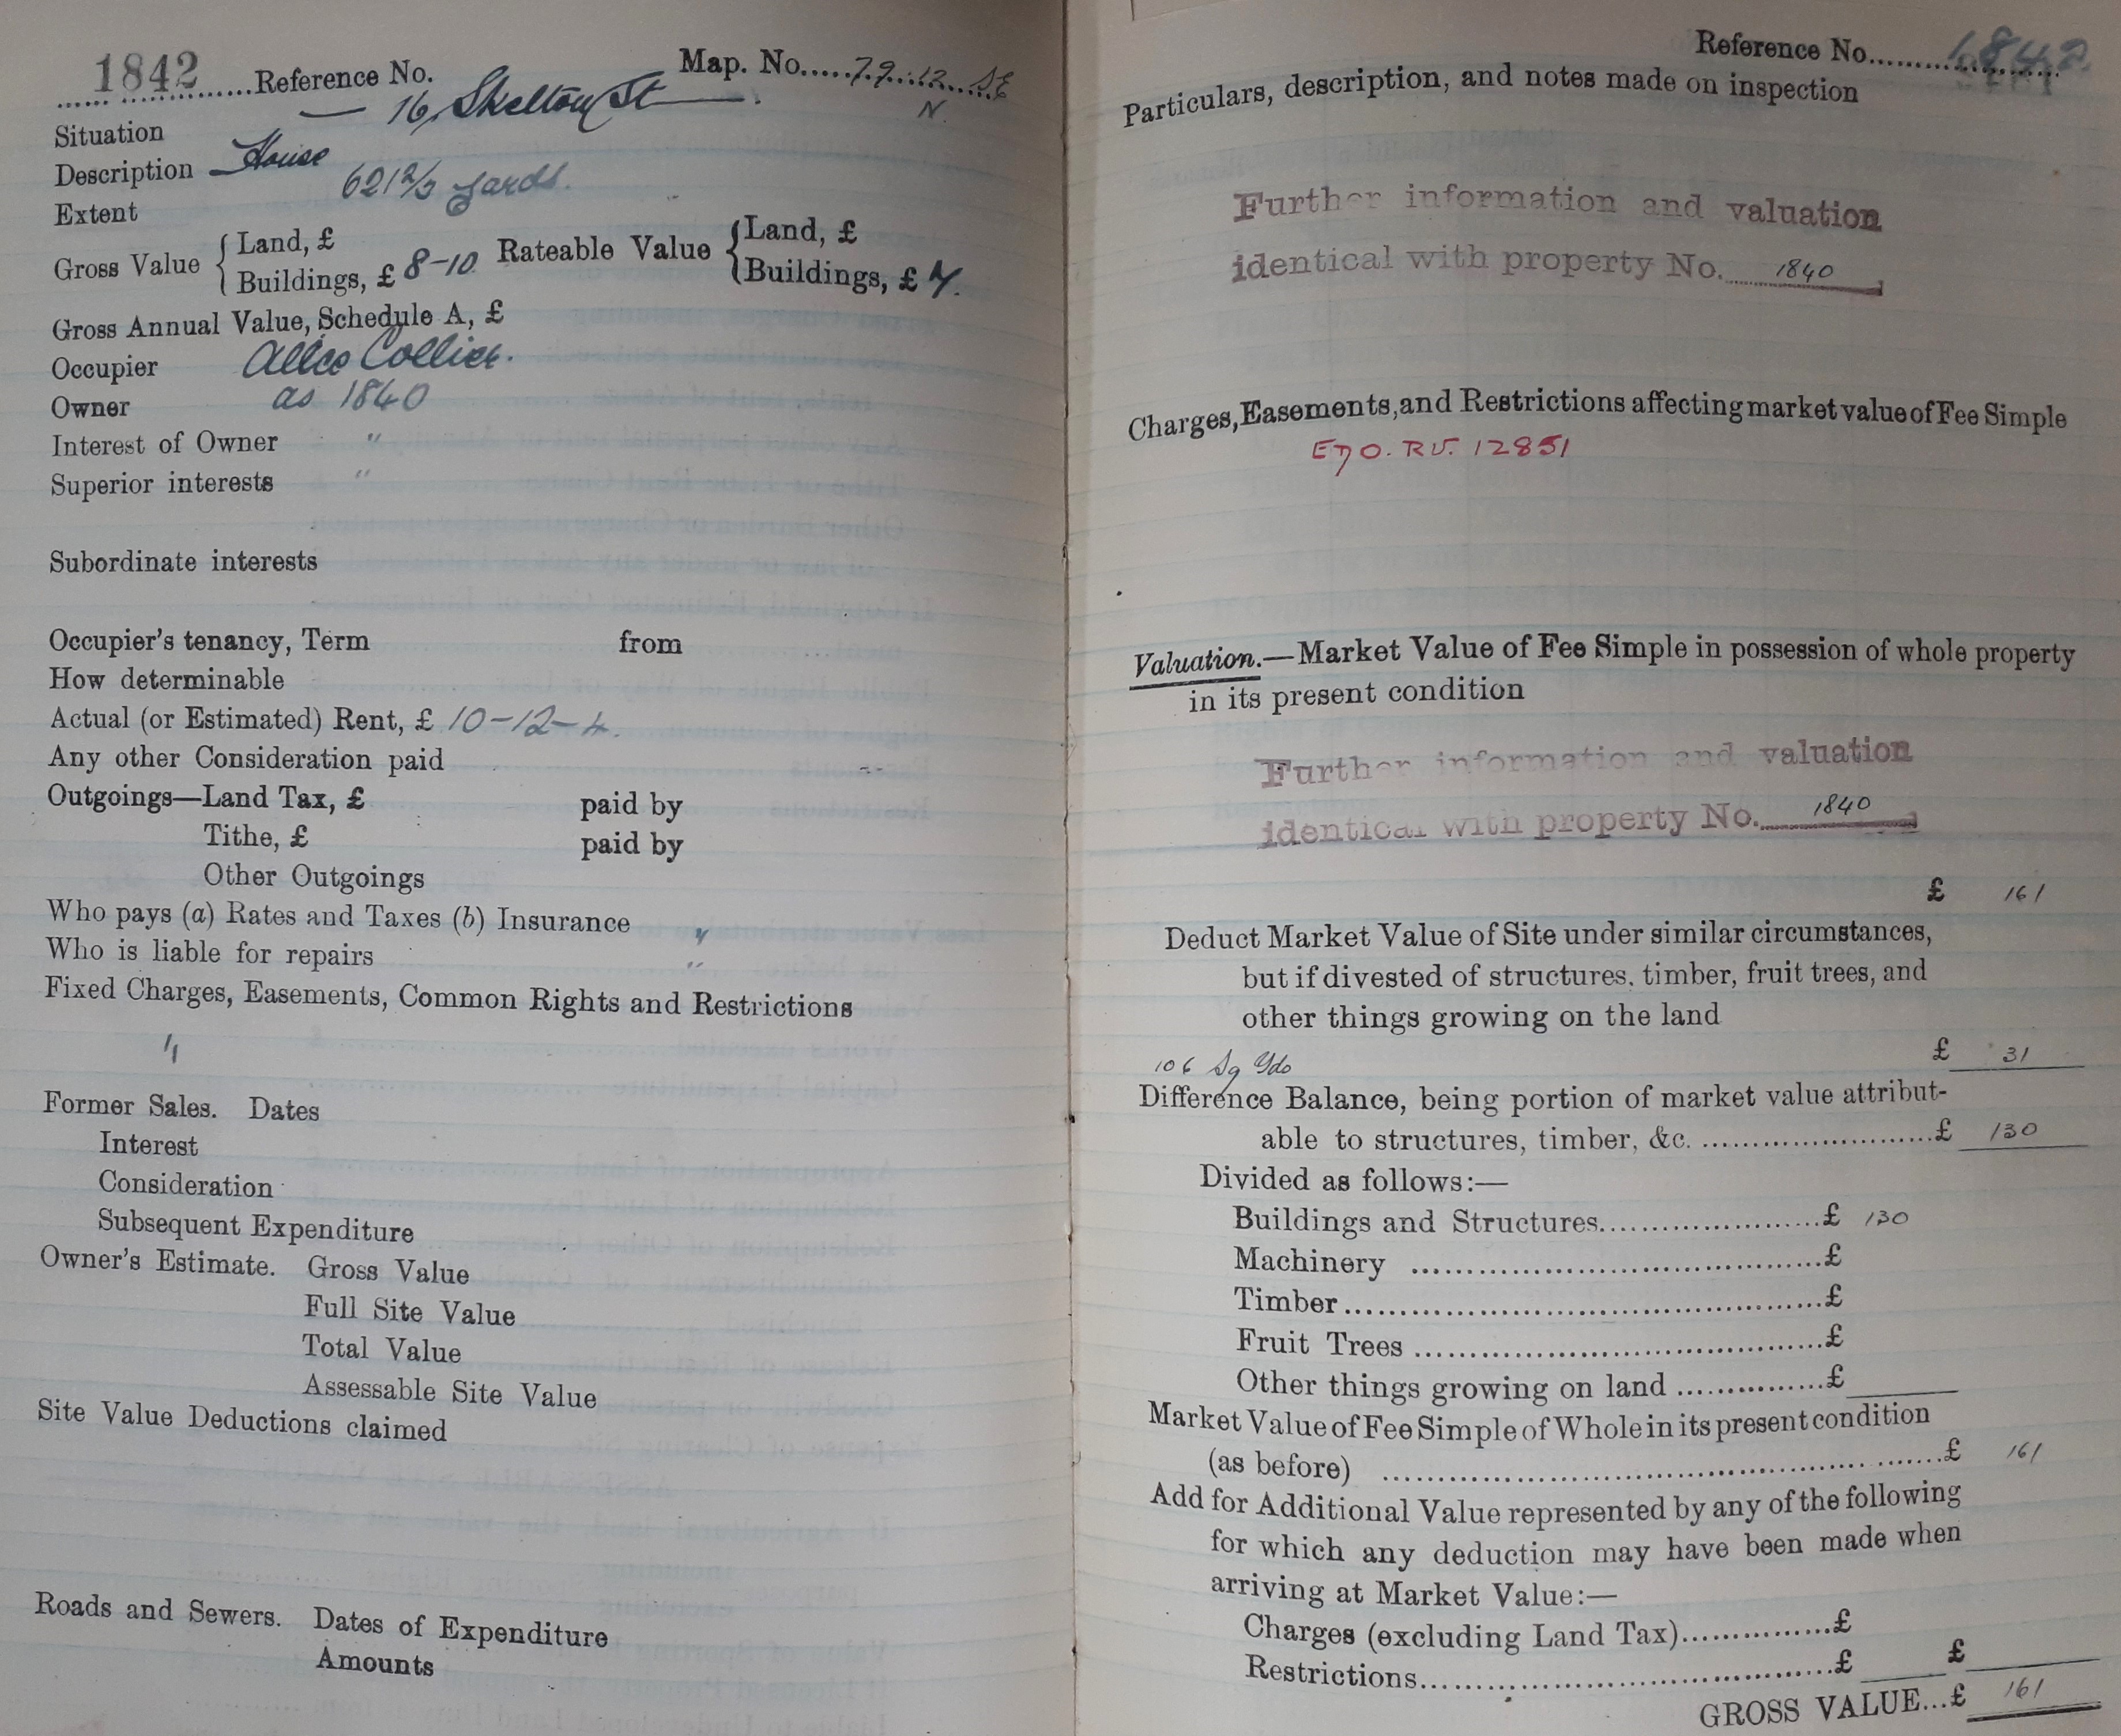 1842 Reference No. Map. No. 79.12. SE
N.
Situation — 16, Skelton St —.
Description House
Extent 621 2/3 yards.
Gross Value { Land, £
Buildings, £ 8-10 Rateable Value { Land, £
Buildings, £
Gross Annual Value, Schedule A, £
Occupier Alice Collier.
Owner as 1840
Interest of Owner "
Superior interests "
Subordinate interests
Occupier's tenancy, Term from
How determinable
Actual (or Estimated) Rent, £ 10-12-4.
Any other Consideration paid
Outgoings—Land Tax, £ paid by
Tithe, £ paid by
Other Outgoings
Who pays (a) Rates and Taxes (b) Insurance "
Who is liable for repairs "
Fixed Charges, Easements, Common Rights and Restrictions
"
Former Sales. Dates
Interest
Consideration
Subsequent Expenditure
Owner's Estimate. Gross Value
Full Site Value
Total Value
Assessable Site Value
Site Value Deductions claimed
Roads and Sewers. Dates of Expenditure
Amounts
Reference No.
Particulars, description, and notes made on inspection
Further information and valuation
identical with property No. 1840
Charges, Easements, and Restrictions affecting market value of Fee Simple
RV. 12851
Valuation.—Market Value of Fee Simple in possession of whole property
in its present condition
Further information and valuation
identical with property No. 1840
£ 161
Deduct Market Value of Site under similar circumstances,
but if divested of structures, timber, fruit trees, and
other things growing on the land
106 Sq Yds £ 31
Difference Balance, being portion of market value attribut-
able to structures, timber, &c. £ 130
Divided as follows:—
Buildings and Structures £ 130
Machinery £
Timber £
Fruit Trees £
Other things growing on land £
Market Value of Fee Simple of Whole in its present condition
(as before) £ 161
Add for Additional Value represented by any of the following
for which any deduction may have been made when
arriving at Market Value:—
Charges (excluding Land Tax) £
Restrictions £ £
GROSS VALUE...£ 161